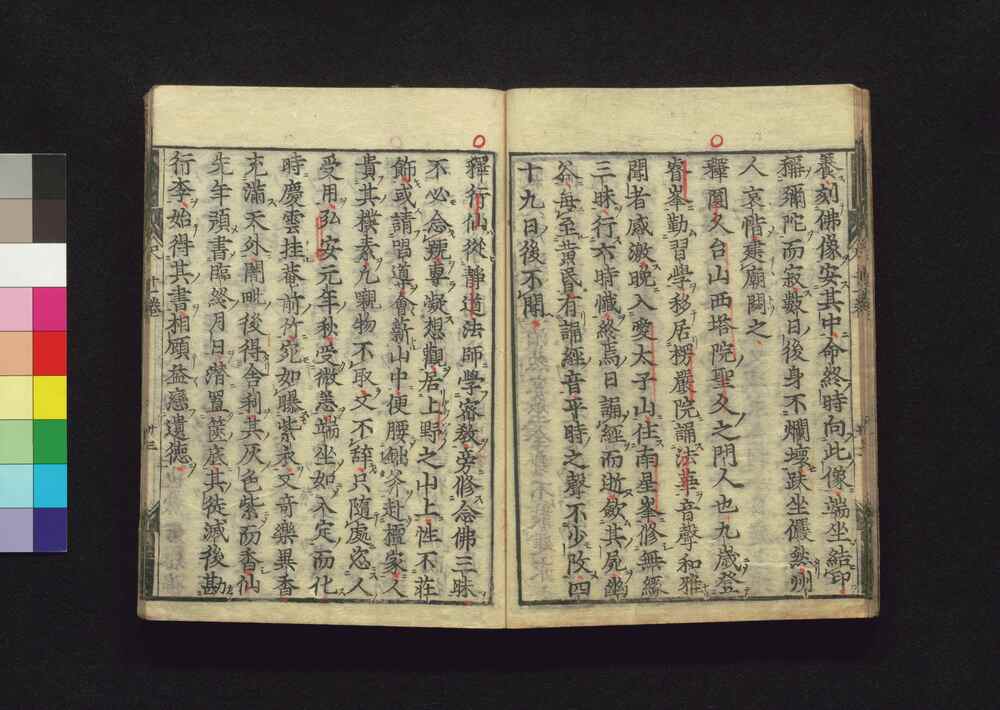 養刻佛像安其中命終時向此像端坐結印
稱彌陀而寂數日後身不爛壞趺坐儼然州
人哀惜建廟閟之
釋圓久台山西塔院聖久之門人也九歲登
睿峯勤習學移居楞嚴院誦法華音聲和雅
聞者感激晚入愛太子山住南星峯修無緣
三昧行六時懺終焉日誦經而逝斂其屍幽
谷每至黃昏有誦經音平時之聲不少改四
十九日後不聞
釋行仙從靜道法師學密教旁修念佛三昧
不必念號專凝想觀居上野之山上性不莊
飾或請問導會新山中便腰鈯斧赴檀家人
貴其撲素凡嚫物不取又不辭只隨處恣人
受用弘安元年秋受微恙端坐如入定而化
時慶雲挂菴前竹如曝紫衣文奇樂異香
充滿天外闍毗後得舍利其灰色紫而香仙
先年預書臨終月日潛置篋底其徒滅後勘
行李始得其書相顧益戀遺德